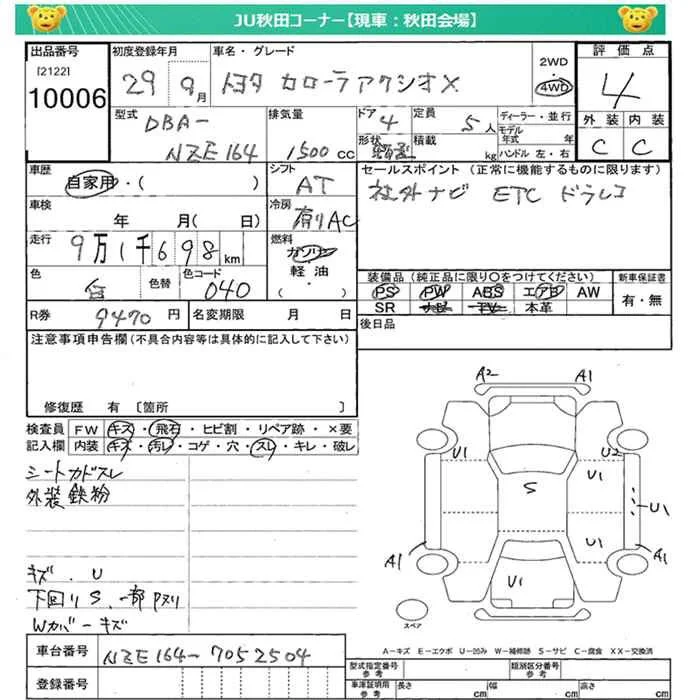 JU秋田コーナー【現車：秋田会場】
出品番号
[2122]
10006
初度登録年月
29 9月
車名・グレード
トヨタ カローラアクシオX
2WD
・
4WD
評価点
4
外装 内装
C C
型式
DBA-
NZE164
排気量
1500cc
ドア
4
形状
定員
5人
積載
kg
ディーラー・並行
モデル年式 年
ハンドル 左・右
車歴
自家用・( )
シフト
AT
セールスポイント (正常に機能するものに限ります)
社外ナビ ETC ドラレコ
車検
年 月( 日)
冷房
有りAC
走行
9万1千698km
燃料
ガソリン
軽油
( ・ )
色
白
色替
色コード
040
装備品(純正品に限り○をつけてください)
PS PW ABS エアB AW
SR ナビ TV 本革
新車保証書
有・無
R券
9470円
名変期限 月 日
後日品
注意事項申告欄(不具合内容等は具体的に記入して下さい)
修復歴 有 〔箇所 〕
検査員記入欄
FW キズ・飛石・ヒビ割・リペア跡・×要
内装 キズ・汚レ・コゲ・穴・スレ・キレ・破レ
シートカドスレ
外装鉄粉
キズ.U
下回りS.一部Pヌリ
Wカバーキズ
A2 A1
U1 U2
U1
S
U1
U1
A1 A1
U1
スペア
A-キズ E-エクボ U-凹み W-補修跡 S-サビ C-腐食 XX-交換済
車台番号
NZE164-7052504
登録番号
型式指定番号
参考
類別区分番号
参考
車庫証明用
参考
長さ cm
幅 cm
高さ cm